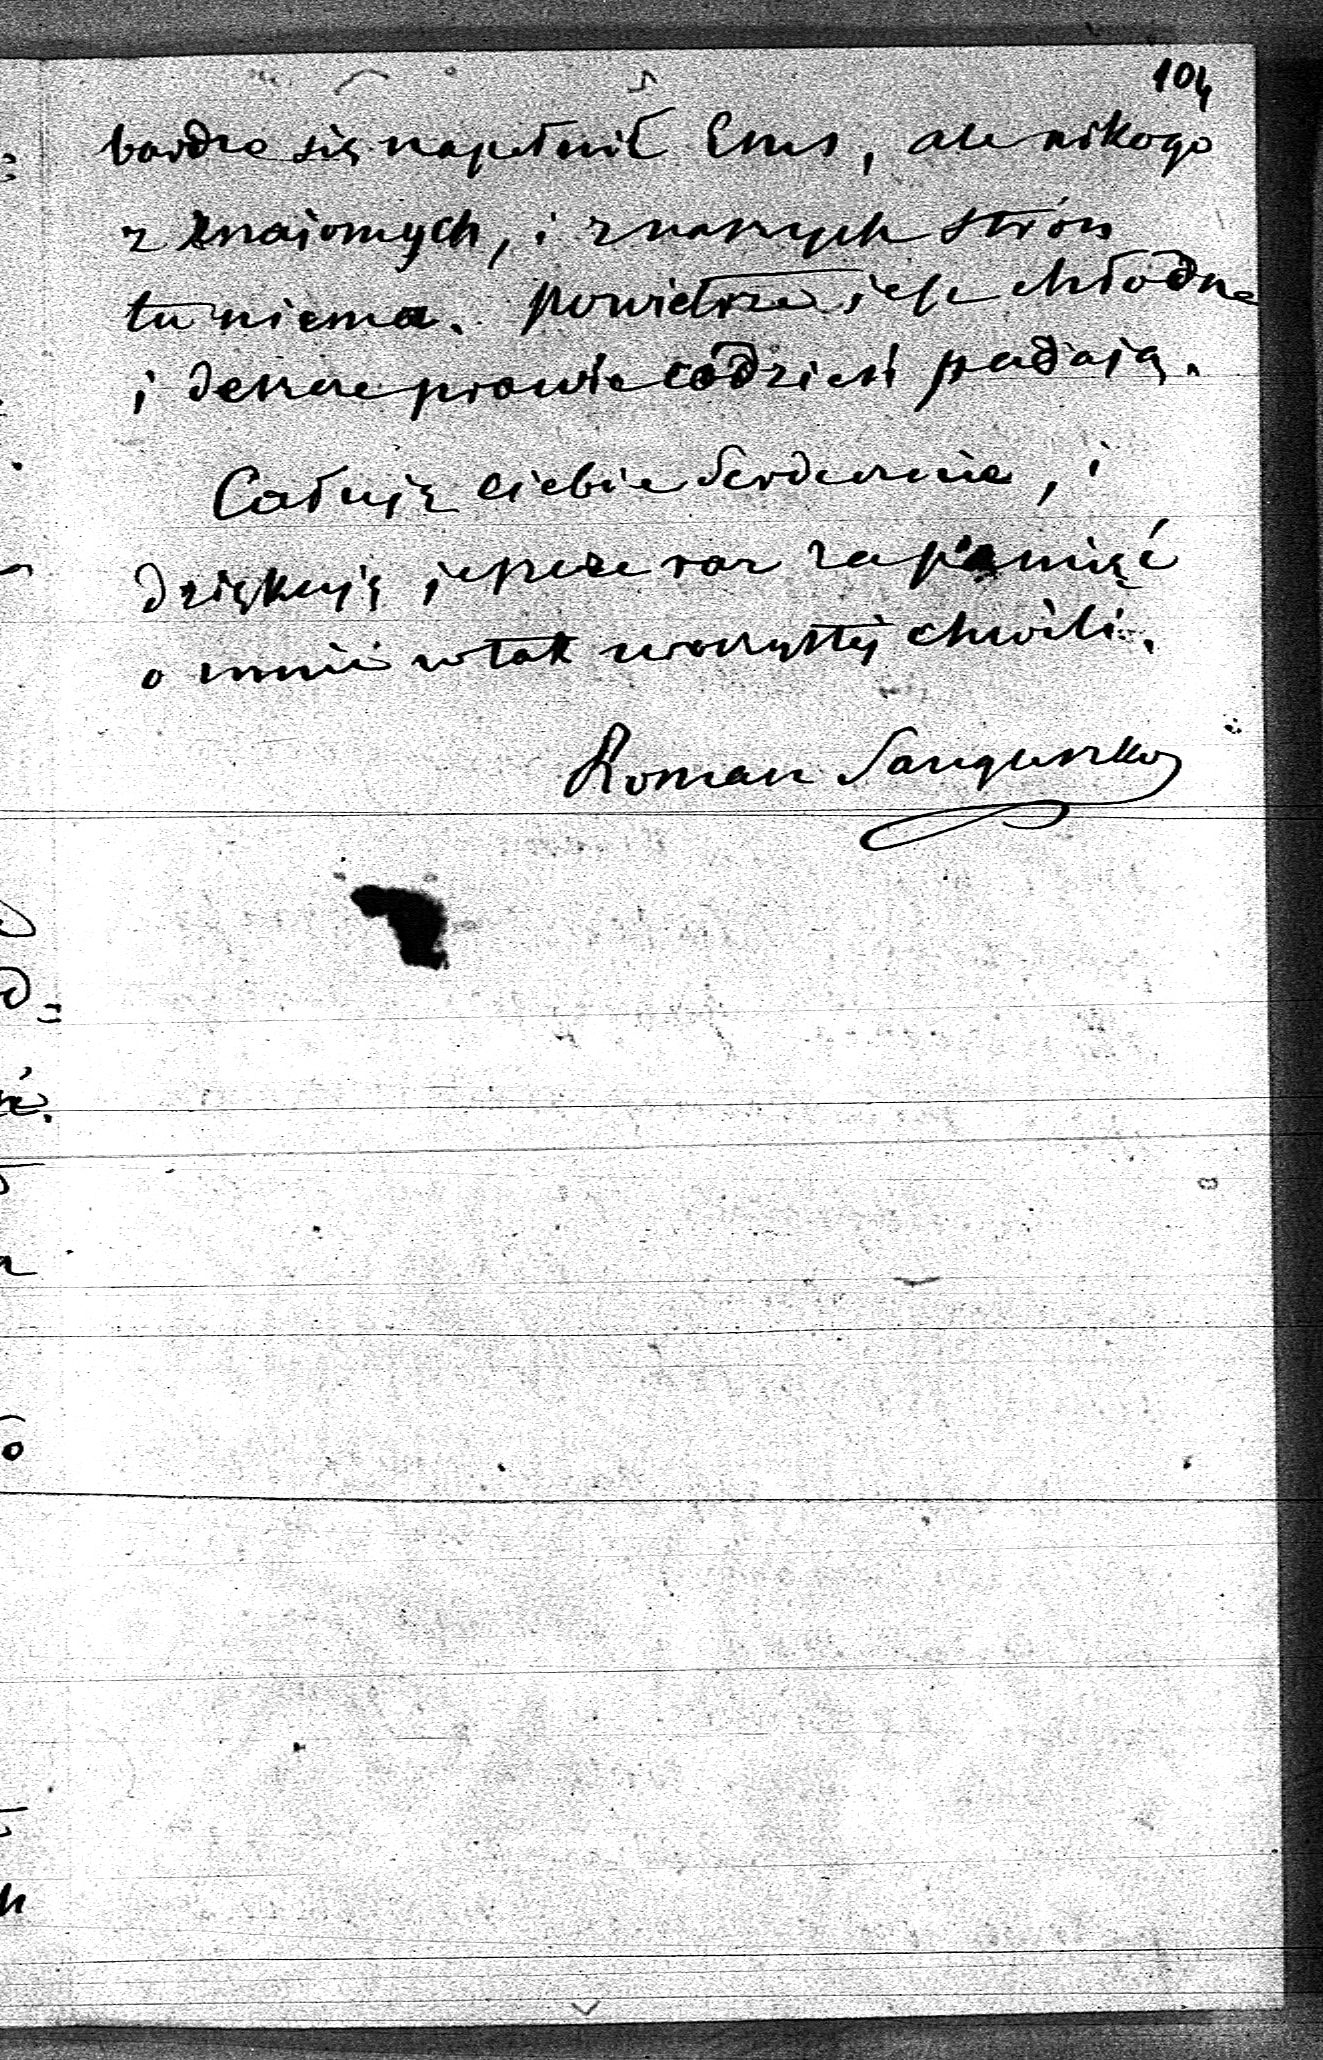 104
bardzo się napełnił Ems, ale nikogo
z znajomych, i z naszych strón
tu niema. Powietrze jest chłodne
i deszcze prawie codzień padają.
Całuję ciebie serdecznie, i
dziękuję jeszcze raz za pamięć
o mnie w tak uroczystej chwili.
Roman Sanguszko